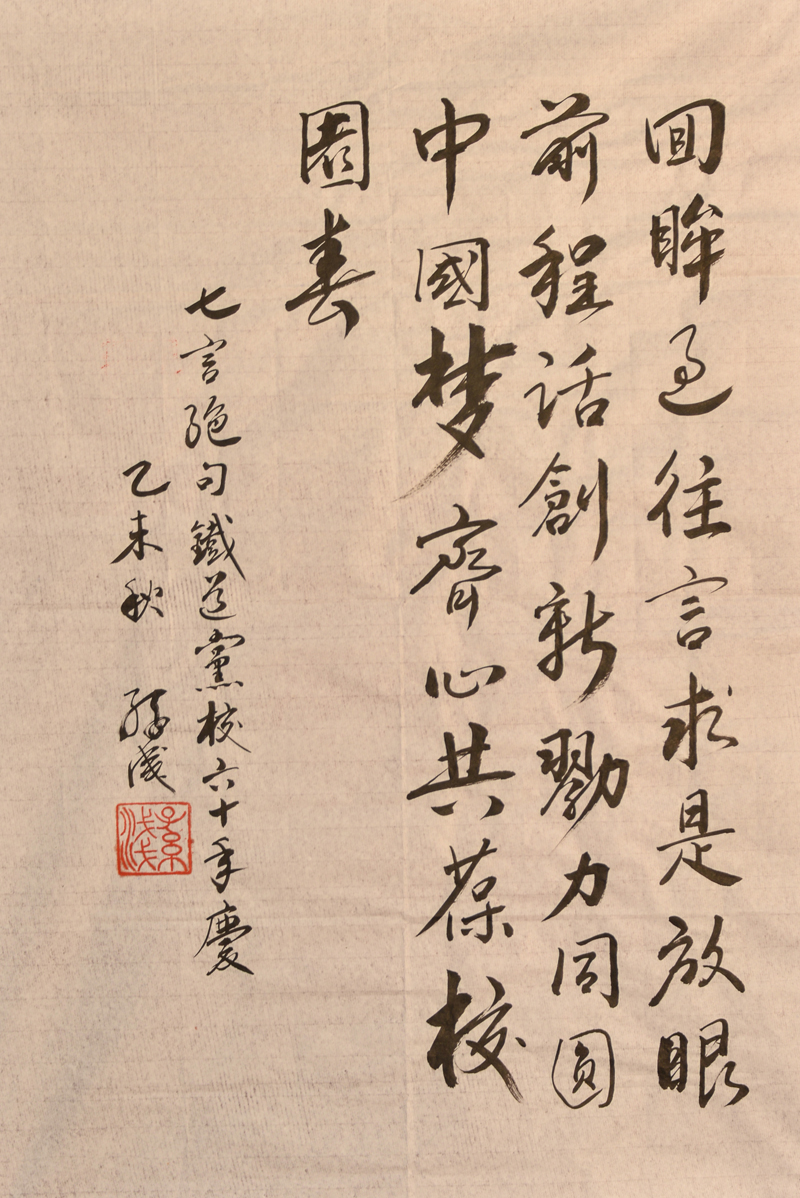 回眸過往言求是放眼
前程話創新勠力同圓
中國梦齊心共葆校
園春
七言絶句鐵道黨校六十年慶
乙未秋 孫淺
孫淺